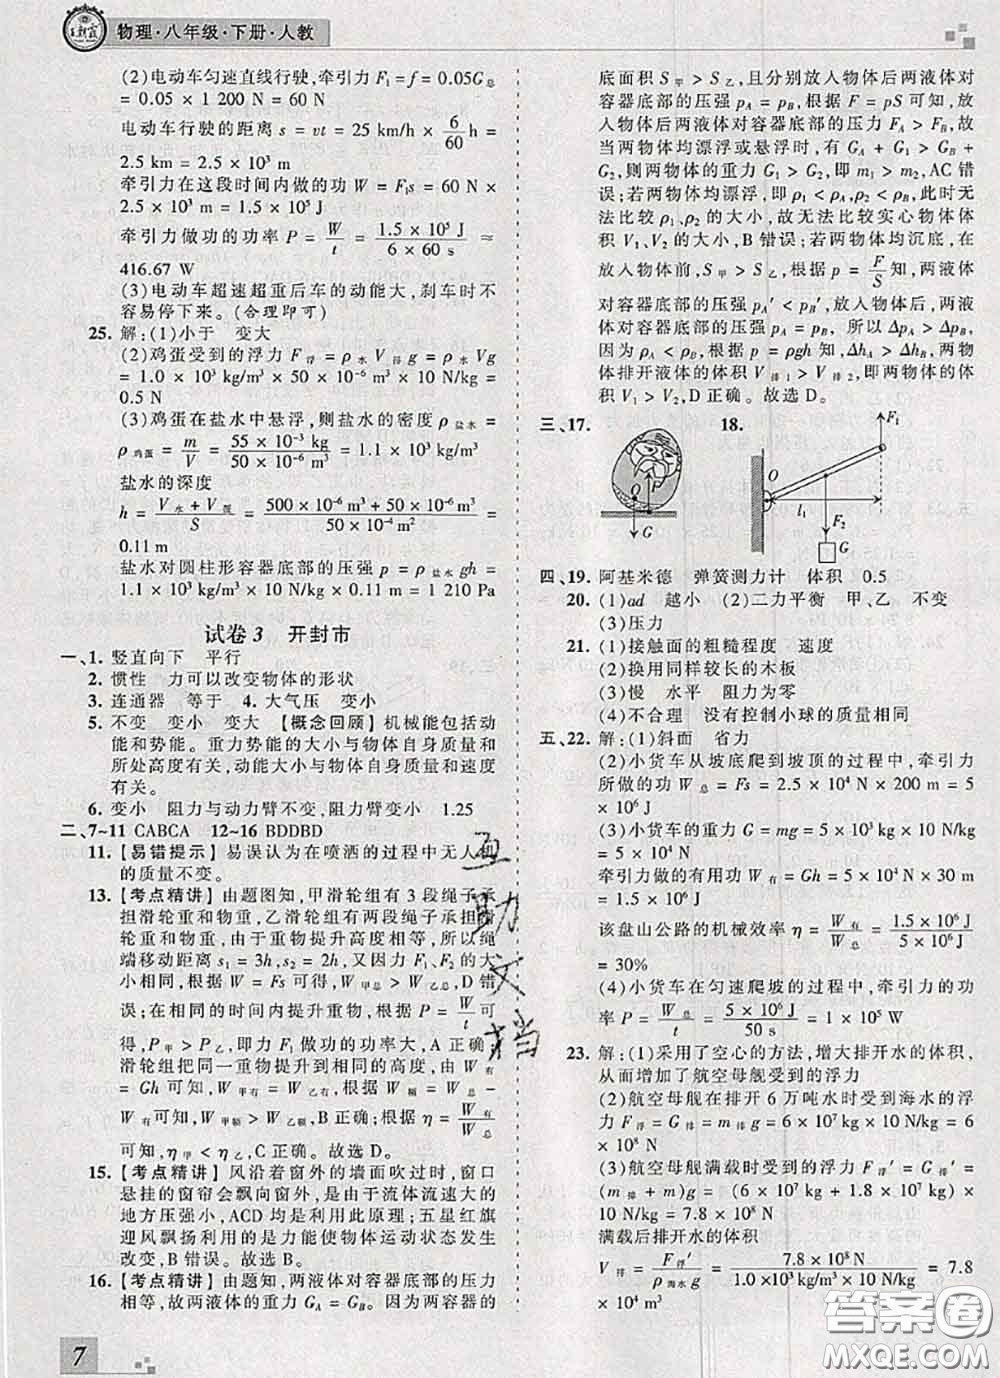 王朝霞 物理·八年级·下册·人教
(2)电动车匀速直线行驶,牵引力 F₁ = f = 0.05G总
= 0.05 × 1 200 N = 60 N
电动车行驶的距离 s = vt = 25 km/h × 6/60 h =
2.5 km = 2.5 × 10³ m
牵引力在这段时间内做的功 W = F₁s = 60 N ×
2.5 × 10³ m = 1.5 × 10⁵ J
牵引力做功的功率 P = W/t = 1.5 × 10⁵ J/6 × 60 s ≈
416.67 W
(3)电动车超速超重后车的动能大,刹车时不
容易停下来。(合理即可)
25. 解:(1)小于 变大
(2)鸡蛋受到的浮力 F浮 = ρ水V排g = ρ水Vg
= 1.0 × 10³ kg/m³ × 50 × 10⁻⁶ m³ × 10 N/kg =
0.5 N
(3)鸡蛋在盐水中悬浮,则盐水的密度 ρ盐水 =
ρ鸡蛋 = m/V = 55 × 10⁻³ kg/50 × 10⁻⁶ m³ = 1.1 × 10³ kg/m³
盐水的深度
h = V水 + V蛋/S = 500 × 10⁻⁶ m³ + 50 × 10⁻⁶ m³/50 × 10⁻⁴ m² =
0.11 m
盐水对圆柱形容器底部的压强 p = ρ盐水gh =
1.1 × 10³ kg/m³ × 10 N/kg × 0.11 m = 1 210 Pa
试卷 3 开封市
一、1. 竖直向下 平行
2. 惯性 力可以改变物体的形状
3. 连通器 等于 4. 大气压 变小
5. 不变 变小 变大 【概念回顾】机械能包括动
能和势能。重力势能的大小与物体自身质量和
所处高度有关,动能大小与物体自身质量和速度
有关。
6. 变小 阻力与动力臂不变,阻力臂变小 1.25
二、7~11 CABCA 12~16 BDDBD
11.【易错提示】易误认为在喷洒的过程中无人机
的质量不变。
13.【考点精讲】由题图知,甲滑轮组有 3 段绳子承
担滑轮重和物重,乙滑轮组有两段绳子承担滑
轮重和物重,由于重物提升高度相等,所以绳
端移动距离 s₁ = 3h,s₂ = 2h,又因力 F₁、F₂ 的大
小相等,根据 W = Fs 可得,W甲总 > W乙总,D 错
误;在相同的时间内提升重物,根据 P = W/t 可
得,P甲 > P乙,即力 F₁ 做功的功率大,A 正确;
滑轮组把同一重物提升相同高度,根据 W有
= Gh 可知 W甲有 = W乙有,根据 W额 = W总 -
W有可知,W甲额 > W乙额,B 正确;根据 η = W有/W总
可知,η甲 < η乙,C 正确。故选 D。
15.【考点精讲】风沿着窗外的墙面吹过时,窗口
悬挂的窗帘会飘向窗外,是由于流体流速大的
地方压强小,ACD 均是利用此原理;五星红旗
迎风飘扬利用的是力能使物体运动状态发生
改变,B 错误。故选 B。
16.【考点精讲】由题知,两液体对容器底部的压力
相等,故两液体的重力 G_A = G_B。因为两容器的
底面积 S甲 > S乙,且分别放入物体后两液体对
容器底部的压强 p_A = p_B,根据 F = pS 可知,放
入物体后两液体对容器底部的压力 F_A > F_B,故
当两物体均漂浮或悬浮时,有 G_A + G₁ > G_B +
G₂,则两物体的重力 G₁ > G₂,即 m₁ > m₂,AC 错
误;若两物体均漂浮,即 ρ₁ < ρ_A,ρ₂ < ρ_B,此时无
法比较 ρ₁、ρ₂ 的大小,故无法比较实心物体体
积 V₁、V₂ 的大小,B 错误;若两物体均沉底,在
放入物体前,S甲 > S乙,根据 p = F/S 知,两液体
对容器底部的压强 p_A′ < p_B′,放入物体后,两液
体对容器底部的压强 p_A = p_B,所以 Δp_A > Δp_B,
因为 ρ_A < ρ_B,根据 p = ρgh 知,Δh_A > Δh_B,两物
体排开液体的体积 V排1 > V排2,即两物体的体
积 V₁ > V₂,D 正确。故选 D。
三、17. 18.
O G
F₁ O l₁ F₂ G
四、19. 阿基米德 弹簧测力计 体积 0.5
20. (1)ad 越小 (2)二力平衡 甲、乙 不变
(3)压力
21. (1)接触面的粗糙程度 速度
(2)换用同样较长的木板
(3)慢 水平 阻力为零
(4)不合理 没有控制小球的质量相同
五、22. 解:(1)斜面 省力
(2)小货车从坡底爬到坡顶的过程中,牵引力
所做的功 W总 = Fs = 2.5 × 10⁴ N × 200 m = 5
× 10⁶ J
(3)小货车的重力 G = mg = 5 × 10³ kg × 10 N/kg
= 5 × 10⁴ N
牵引力做的有用功 W有 = Gh = 5 × 10⁴ N × 30 m
= 1.5 × 10⁶ J
该盘山公路的机械效率 η = W有/W总 = 1.5 × 10⁶ J/5 × 10⁶ J
= 30%
(4)小货车在匀速爬坡的过程中,牵引力的功
率 P = W总/t = 5 × 10⁶ J/50 s = 1 × 10⁵ W
23. 解:(1)采用了空心的方法,增大排开水的体积,
从而增加了航空母舰受到的浮力
(2)航空母舰在排开 6 万吨水时受到海水的浮
力 F浮 = G排 = m排g = 6 × 10⁷ kg × 10 N/kg = 6
× 10⁸ N
(3)航空母舰满载时受到的浮力 F浮′ = G排′ =
(m排 + m)g = (6 × 10⁷ kg + 1.8 × 10⁷ kg) × 10
N/kg = 7.8 × 10⁸ N
满载后排开水的体积
V排 = F浮′/ρ海水g = 7.8 × 10⁸ N/1.0 ×10³ kg/m³ × 10 N/kg = 7.8
× 10⁴ m³
互助文档
7
答案圈
MXQE.COM